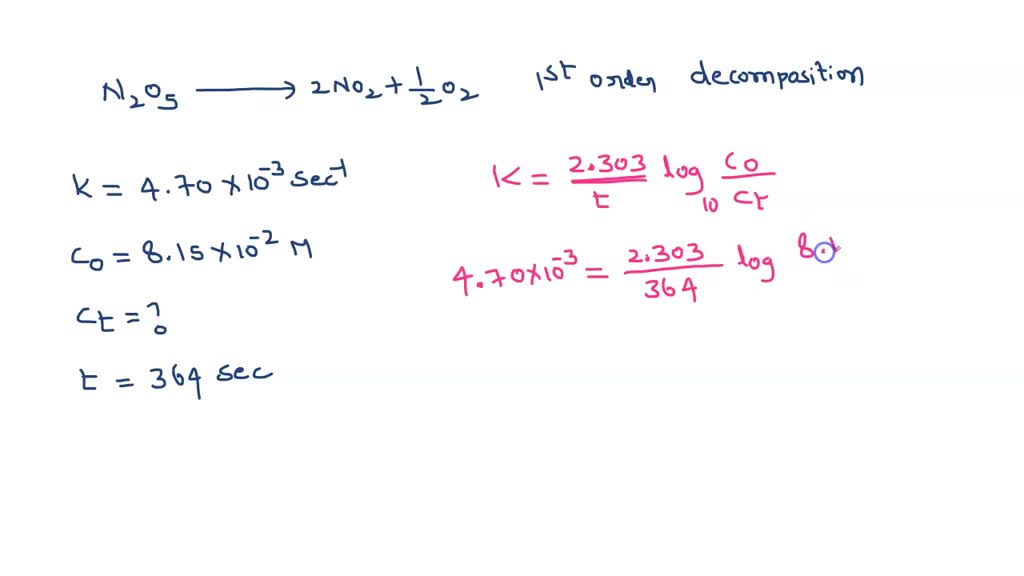 N₂O₅ → 2NO₂ + 1/2 O₂ 1st order decompasition
K = 4.70 × 10⁻³ sec⁻¹
C₀ = 8.15 × 10⁻² M
Ct = ?
t = 364 sec
K = 2.303/t log₁₀ C₀/Ct
4.70×10⁻³ = 2.303/364 log 8.